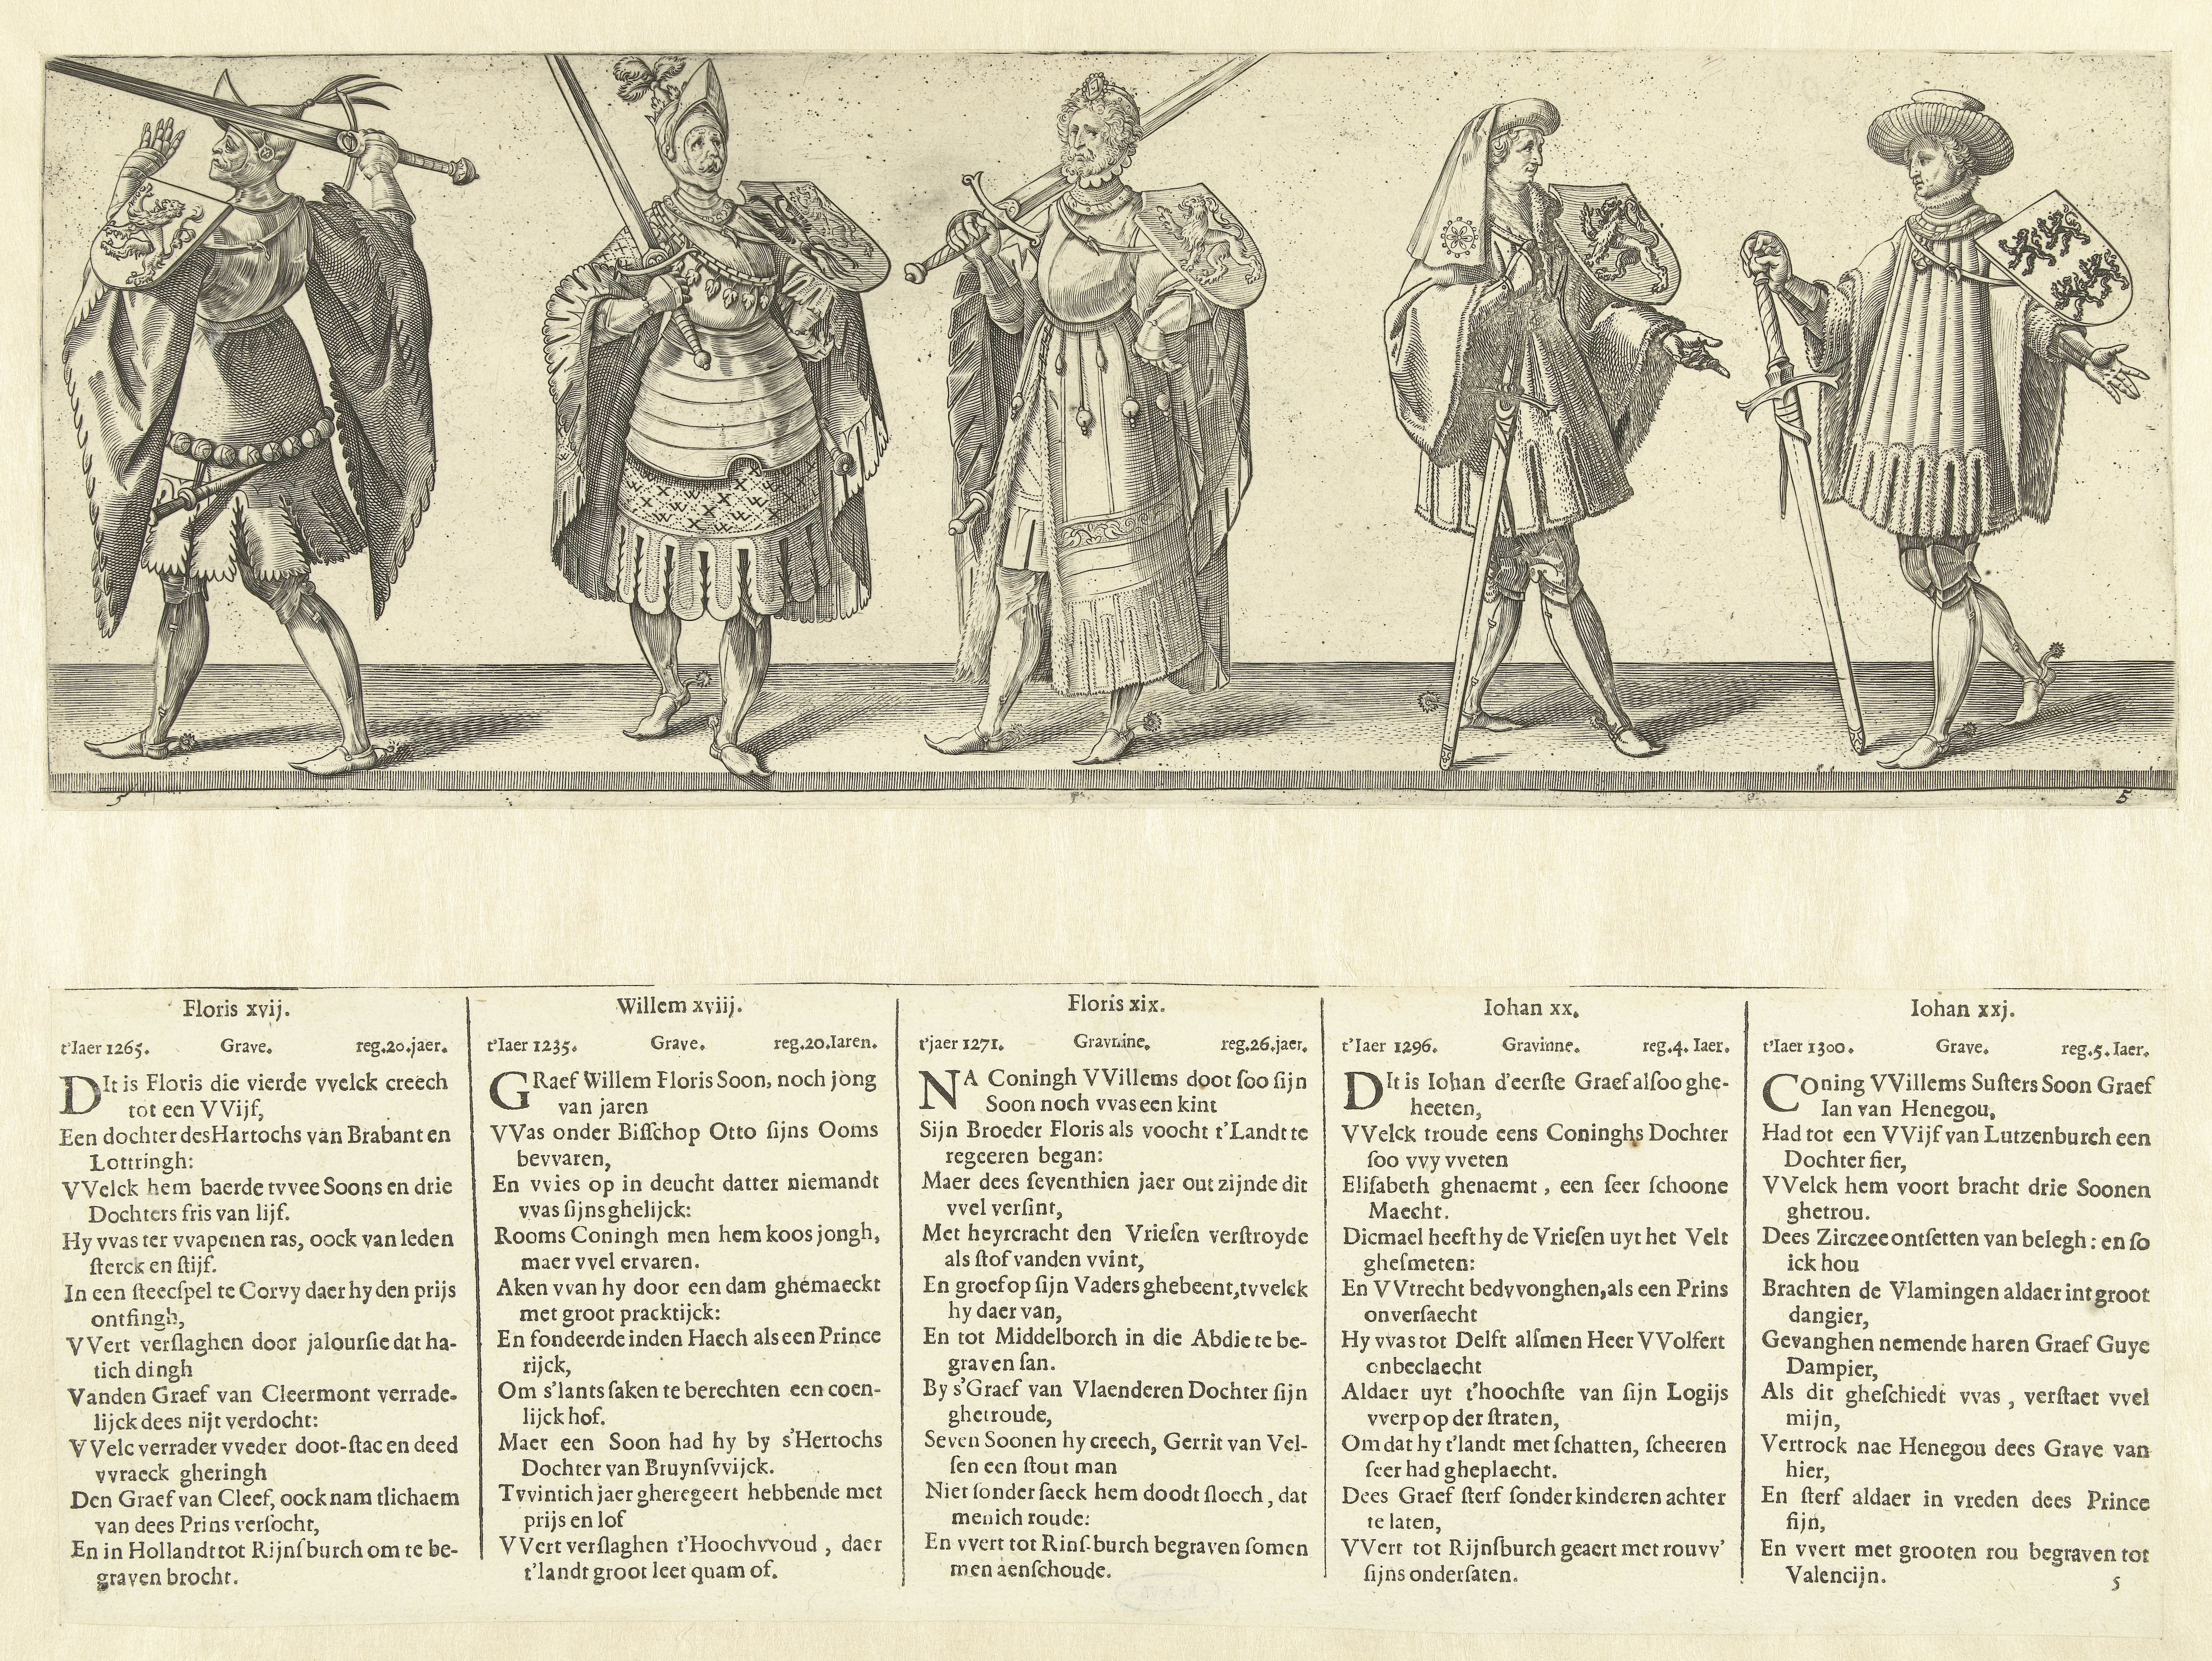 5
5
Floris xvij.
t'Iaer 1265. Grave. reg.20.jaer.
DIt is Floris die vierde vvelck creech
tot een VVijf,
Een dochter des Hartochs van Brabant en
Lottringh:
VVelck hem baerde tvvee Soons en drie
Dochters fris van lijf.
Hy vvas ter vvapenen ras, oock van leden
ſterck en ſtijf.
In een ſteecſpel te Corvy daer hy den prijs
ontfingh,
VVert verſlaghen door jalourſie dat ha-
tich dingh
Vanden Graef van Cleermont verrade-
lijck dees nijt verdocht:
VVelc verrader vveder doot-ſtac en deed
vvraeck gheringh
Den Graef van Cleef, oock nam tlichaem
van dees Prins verſocht,
En in Hollandt tot Rijnſburch om te be-
graven brocht.
Willem xviij.
t'Iaer 1235. Grave. reg.20.Iaren.
GRaef Willem Floris Soon, noch jong
van jaren
VVas onder Biſſchop Otto ſijns Ooms
bevvaren,
En vvies op in deucht datter niemandt
vvas ſijns ghelijck:
Rooms Coningh men hem koos jongh,
maer vvel ervaren.
Aken vvan hy door een dam ghemaeckt
met groot pracktijck:
En fondeerde inden Haech als een Prince
rijck,
Om s'lants ſaken te berechten een coen-
lijck hof.
Maer een Soon had hy by s'Hertochs
Dochter van Bruynſvvijck.
Tvvintich jaer gheregeert hebbende met
prijs en lof
VVert verſlaghen t'Hoochvvoud, daer
t'landt groot leet quam of.
Floris xix.
t'jaer 1271. Gravnine. reg.26.jaer.
NA Coningh VVillems doot ſoo ſijn
Soon noch vvas een kint
Sijn Broeder Floris als voocht t'Landt te
regeeren began:
Maer dees ſeventhien jaer out zijnde dit
vvel verſint,
Met heyrcracht den Vrieſen verſtroyde
als ſtof vanden vvint,
En groef op ſijn Vaders ghebeent, tvvelck
hy daer van,
En tot Middelborch in die Abdie te be-
graven ſan.
By s'Graef van Vlaenderen Dochter ſijn
ghetroude,
Seven Soonen hy creech, Gerrit van Vel-
ſen een ſtout man
Niet ſonder ſaeck hem doodt ſloech, dat
menich roude:
En vvert tot Rinſ-burch begraven ſomen
men aenſchoude.
Iohan xx.
t'Iaer 1296. Gravinne. reg.4. Iaer.
DIt is Iohan d'eerſte Graef alſoo ghe-
heeten,
VVelck troude eens Coninghs Dochter
ſoo vvy vveten
Eliſabeth ghenaemt, een ſeer ſchoone
Maecht.
Dicmael heeft hy de Vrieſen uyt het Velt
gheſmeten:
En VVtrecht bedvvonghen, als een Prins
onverſaecht
Hy vvas tot Delft alſmen Heer VVolfert
onbeclaecht
Aldaer uyt t'hoochſte van ſijn Logijs
vverp op der ſtraten,
Om dat hy t'landt met ſchatten, ſcheeren
ſeer had gheplaecht.
Dees Graef ſterf ſonder kinderen achter
te laten,
VVert tot Rijnſburch geaert met rouvv'
ſijns onderſaten.
Iohan xxj.
t'Iaer 1300. Grave. reg.5.Iaer.
COning VVillems Suſters Soon Graef
Ian van Henegou,
Had tot een VVijf van Lutzenburch een
Dochter fier,
VVelck hem voort bracht drie Soonen
ghetrou.
Dees Zirczee ontſetten van belegh: en ſo
ick hou
Brachten de Vlamingen aldaer int groot
dangier,
Gevanghen nemende haren Graef Guye
Dampier,
Als dit gheſchiedt vvas, verſtaet vvel
mijn,
Vertrock nae Henegou dees Grave van
hier,
En ſterf aldaer in vreden dees Prince
fijn,
En vvert met grooten rou begraven tot
Valencijn.
5